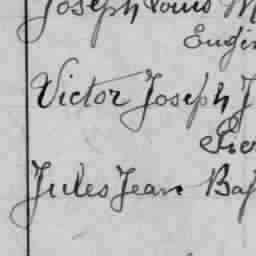 Joseph Louis M
Engin
Victor Joseph J
Jules Jean Bap